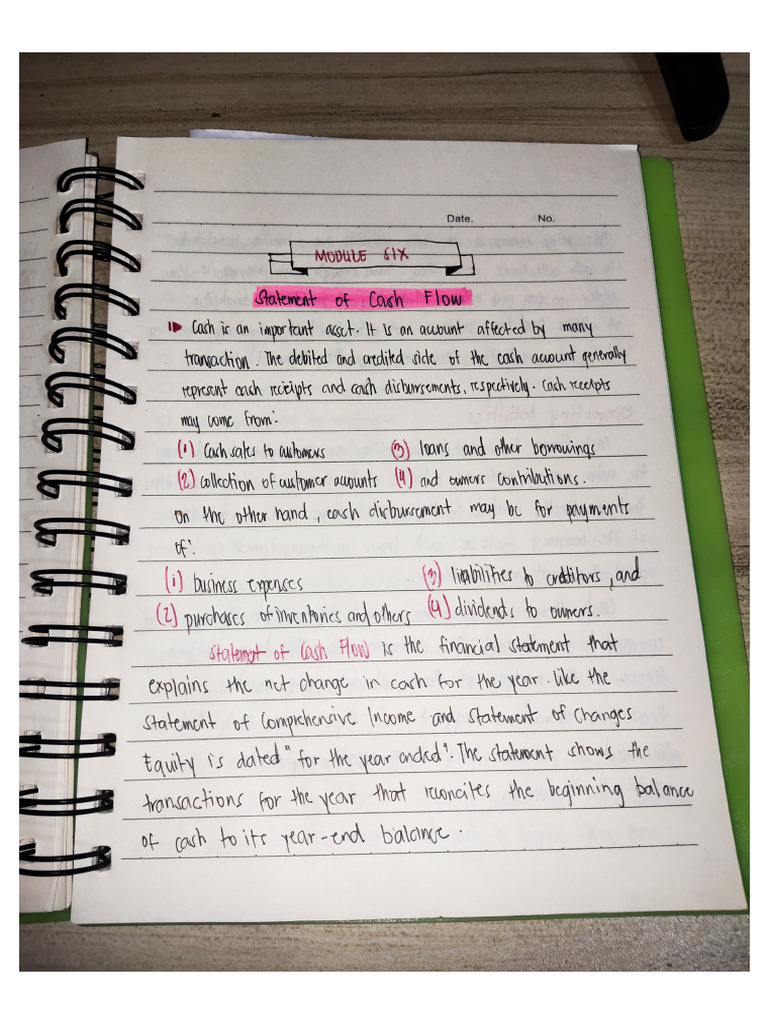 Date. No.
MODULE SIX
Statement of Cash Flow
Cash is an important asset. It is an account affected by many
transaction. The debited and credited side of the cash account generally
represent cash receipts and cash disbursements, respectively. Cash receipts
may come from:
(1) Cash sales to customers (3) loans and other borrowings
(2) collection of customer accounts (4) and owners contributions.
On the other hand, cash disbursement may be for payments
of:
(1) business expenses (3) liabilities to creditors, and
(2) purchases of inventories and others (4) dividends to owners.
Statemet of Cash Flow is the financial statement that
explains the net change in cash for the year. Like the
Statement of Comprehensive Income and Statement of Changes
Equity is dated "for the year ended". The statement shows the
transactions for the year that reconciles the beginning balance
of cash to its year-end balance.